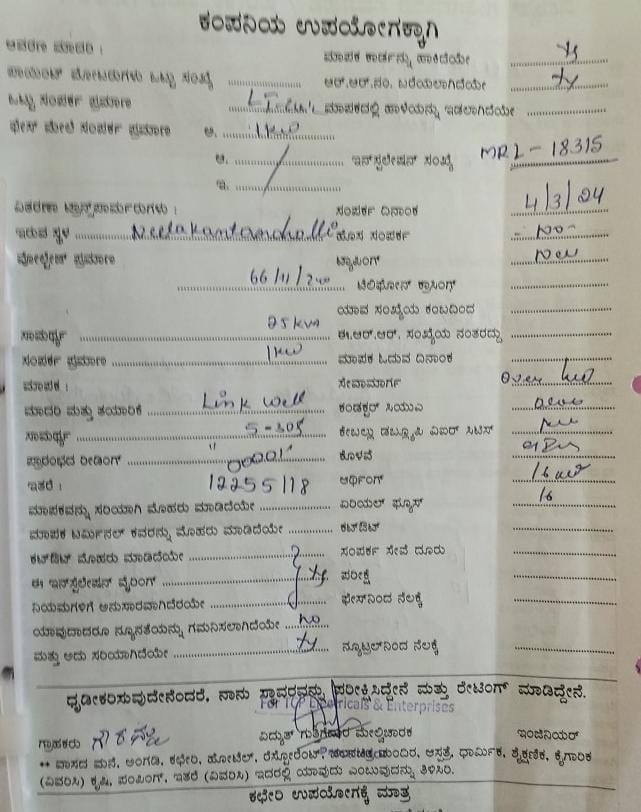 ಕಂಪನಿಯ ಉಪಯೋಗಕ್ಕಾಗಿ
ಆವರಣ ಮಾದರಿ : ಮಾಪಕ ಕಾರ್ಡನ್ನು ಹಾಕಿದೆಯೇ
ಪಾಯಿಂಟ್ ಮೋಟರುಗಳು ಒಟ್ಟು ಸಂಖ್ಯೆ ಆರ್.ಆರ್.ನಂ. ಬರೆಯಲಾಗಿದೆಯೇ
ಒಟ್ಟು ಸಂಪರ್ಕ ಪ್ರಮಾಣ ಮಾಪಕದಲ್ಲಿ ಹಾಳೆಯನ್ನು ಇಡಲಾಗಿದೆಯೇ
ಫೇಸ್ ಮೇಲೆ ಸಂಪರ್ಕ ಪ್ರಮಾಣ ಅ. 1KW
ಆ. ಇನ್‌ಸ್ಟಲೇಷನ್ ಸಂಖ್ಯೆ MRL - 18315
ಇ.
ವಿತರಣಾ ಟ್ರಾನ್ಸ್‌ಫಾರ್ಮರುಗಳು : ಸಂಪರ್ಕ ದಿನಾಂಕ 4/3/24
ಇರುವ ಸ್ಥಳ Neelakantanahalli ಹೊಸ ಸಂಪರ್ಕ - No -
ವೋಲ್ಟೇಜ್ ಪ್ರಮಾಣ ಟ್ಯಾಪಿಂಗ್ New
66/11/ ಟೆಲಿಫೋನ್ ಕ್ರಾಸಿಂಗ್
ಯಾವ ಸಂಖ್ಯೆಯ ಕಂಬದಿಂದ
ಸಾಮರ್ಥ್ಯ 25kva ಈ.ಆರ್.ಆರ್. ಸಂಖ್ಯೆಯ ನಂತರದ್ದು
ಸಂಪರ್ಕ ಪ್ರಮಾಣ 1KW ಮಾಪಕ ಓದುವ ದಿನಾಂಕ
ಮಾಪಕ : ಸೇವಾಮಾರ್ಗ Over
ಮಾದರಿ ಮತ್ತು ತಯಾರಿಕೆ Link well ಕಂಡಕ್ಟರ್ ಸಿಯುಎ
ಸಾಮರ್ಥ್ಯ 5-30S ಕೇಬಲ್ಲು ಡಬ್ಲ್ಯೂಪಿ ಏಐರ್ ಸಿಟಿಸ್
ಪ್ರಾರಂಭದ ರೀಡಿಂಗ್ "00001" ಕೊಳವೆ
ಇತರೆ : 12255118 ಆರ್ಥಿಂಗ್
ಮಾಪಕವನ್ನು ಸರಿಯಾಗಿ ಮೊಹರು ಮಾಡಿದೆಯೇ ಏರಿಯಲ್ ಫ್ಯೂಸ್ 16
ಮಾಪಕ ಟರ್ಮಿನಲ್ ಕವರನ್ನು ಮೊಹರು ಮಾಡಿದೆಯೇ ಕಟ್‌ಔಟ್
ಕಟ್‌ಔಟ್ ಮೊಹರು ಮಾಡಿದೆಯೇ ಸಂಪರ್ಕ ಸೇವೆ ದೂರು
ಈ ಇನ್‌ಸ್ಟಲೇಷನ್ ವೈರಿಂಗ್ ಪರೀಕ್ಷೆ
ನಿಯಮಗಳಿಗೆ ಅನುಸಾರವಾಗಿದೆರಯೇ ಫೇಸ್‌ನಿಂದ ನೆಲಕ್ಕೆ
ಯಾವುದಾದರೂ ನ್ಯೂನತೆಯನ್ನು ಗಮನಿಸಲಾಗಿದೆಯೇ No
ಮತ್ತು ಅದು ಸರಿಯಾಗಿದೆಯೇ ನ್ಯೂಟ್ರಲ್‌ನಿಂದ ನೆಲಕ್ಕೆ
ಧೃಡೀಕರಿಸುವುದೇನೆಂದರೆ, ನಾನು ಸ್ಥಾವರವನ್ನು ಪರೀಕ್ಷಿಸಿದ್ದೇನೆ ಮತ್ತು ರೇಟಿಂಗ್ ಮಾಡಿದ್ದೇನೆ.
For TCP Electricals & Enterprises
ಗ್ರಾಹಕರು ವಿದ್ಯುತ್ ಗುತ್ತಿಗೆದಾರ ಮೇಲ್ವಿಚಾರಕ ಇಂಜಿನಿಯರ್
** ವಾಸದ ಮನೆ, ಅಂಗಡಿ, ಕಛೇರಿ, ಹೋಟೆಲ್, ರೆಸ್ಟೋರೆಂಟ್, ಚಲನಚಿತ್ರ ಮಂದಿರ, ಆಸ್ಪತ್ರೆ, ಧಾರ್ಮಿಕ, ಶೈಕ್ಷಣಿಕ, ಕೈಗಾರಿಕ
(ವಿವರಿಸಿ) ಕೃಷಿ, ಪಂಪಿಂಗ್, ಇತರೆ (ವಿವರಿಸಿ) ಇದರಲ್ಲಿ ಯಾವುದು ಎಂಬುವುದನ್ನು ತಿಳಿಸಿರಿ.
ಕಛೇರಿ ಉಪಯೋಗಕ್ಕೆ ಮಾತ್ರ